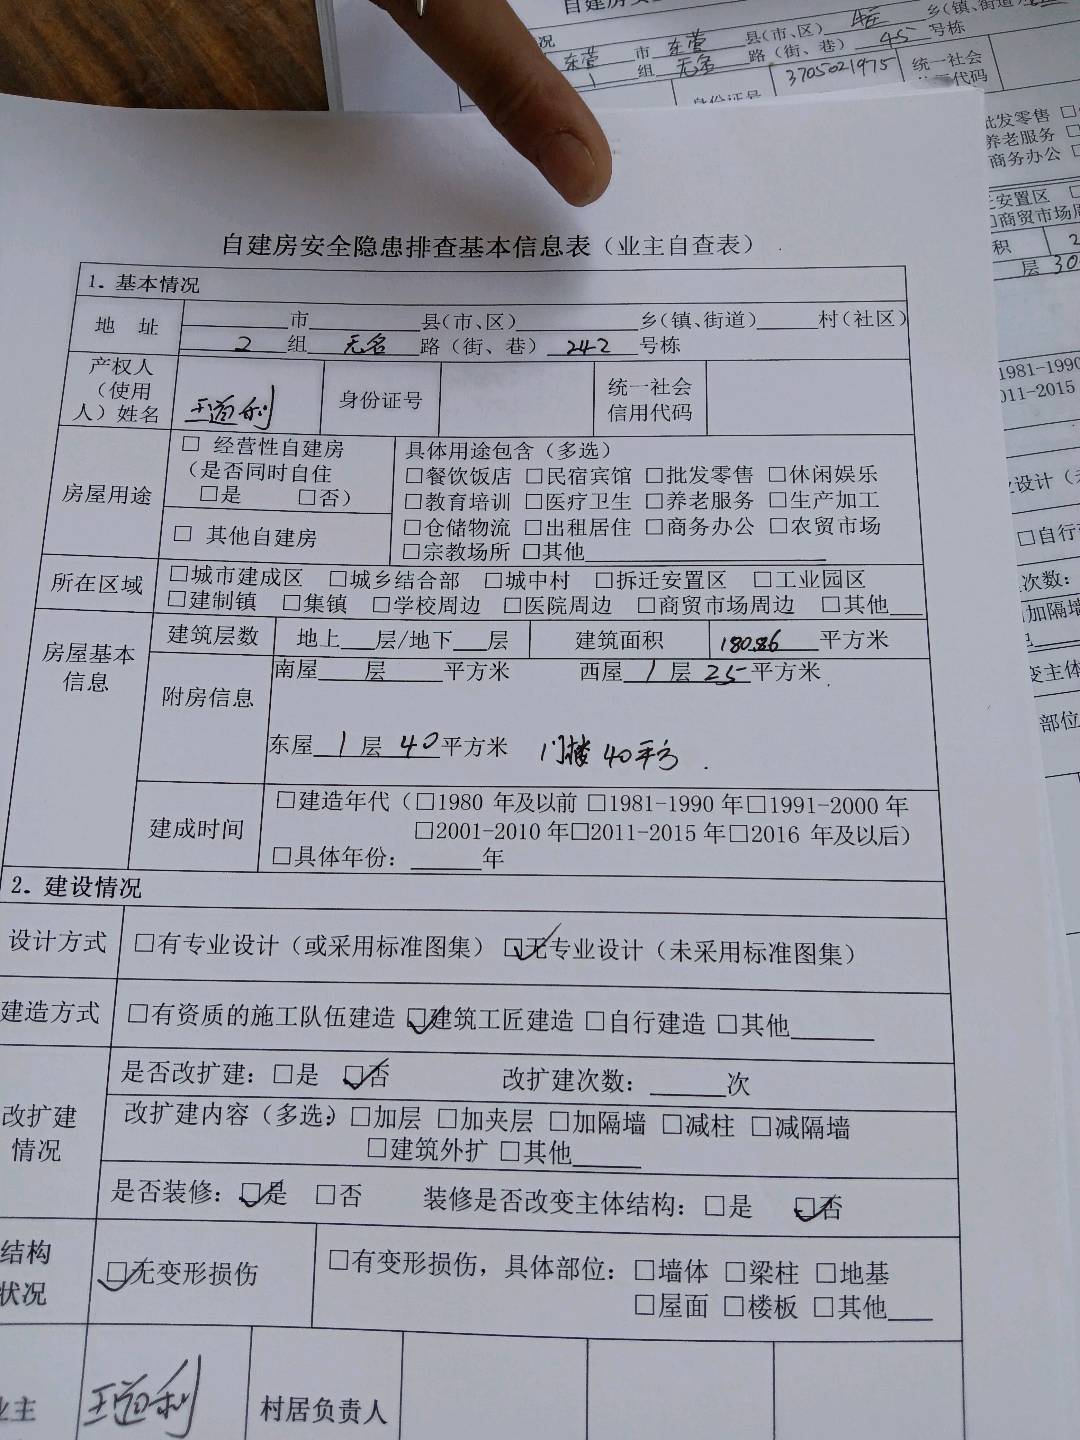 自建房安全隐患排查基本信息表（业主自查表）
1. 基本情况
地 址
______市______县（市、区）______乡（镇、街道）____村（社区）
2 组 无名 路（街、巷） 242 号栋
产权人（使用人）姓名 王道利 身份证号 统一社会信用代码
房屋用途
□ 经营性自建房
（是否同时自住
□是 □否）
□ 其他自建房
具体用途包含（多选）
□餐饮饭店 □民宿宾馆 □批发零售 □休闲娱乐
□教育培训 □医疗卫生 □养老服务 □生产加工
□仓储物流 □出租居住 □商务办公 □农贸市场
□宗教场所 □其他______
所在区域
□城市建成区 □城乡结合部 □城中村 □拆迁安置区 □工业园区
□建制镇 □集镇 □学校周边 □医院周边 □商贸市场周边 □其他___
房屋基本信息
建筑层数 地上__层/地下__层 建筑面积 180.86 平方米
附房信息
南屋____层____平方米 西屋 1 层 25 平方米
东屋 1 层 40 平方米 门楼 40平方
建成时间
□建造年代（□1980 年及以前 □1981-1990 年□1991-2000 年
□2001-2010 年□2011-2015 年□2016 年及以后）
□具体年份：____年
2. 建设情况
设计方式 □有专业设计（或采用标准图集） ☑无专业设计（未采用标准图集）
建造方式 □有资质的施工队伍建造 ☑建筑工匠建造 □自行建造 □其他____
改扩建情况
是否改扩建：□是 ☑否 改扩建次数：____次
改扩建内容（多选）：□加层 □加夹层 □加隔墙 □减柱 □减隔墙
□建筑外扩 □其他____
是否装修：☑是 □否 装修是否改变主体结构：□是 ☑否
结构
状况
☑无变形损伤
□有变形损伤，具体部位：□墙体 □梁柱 □地基
□屋面 □楼板 □其他___
业主 王道利 村居负责人
自建房安
况
东营 市 东营 县（市、区） 乡（镇、街道）
1 组 无名 路（街、巷） 45 号栋
身份证号 3705021975 统一社会
代码
批发零售
养老服务
商务办公
安置区
□商贸市场
积
层 30
1981-1990
011-2015
设计
□自行
次数：
加隔墙
变主体
部位